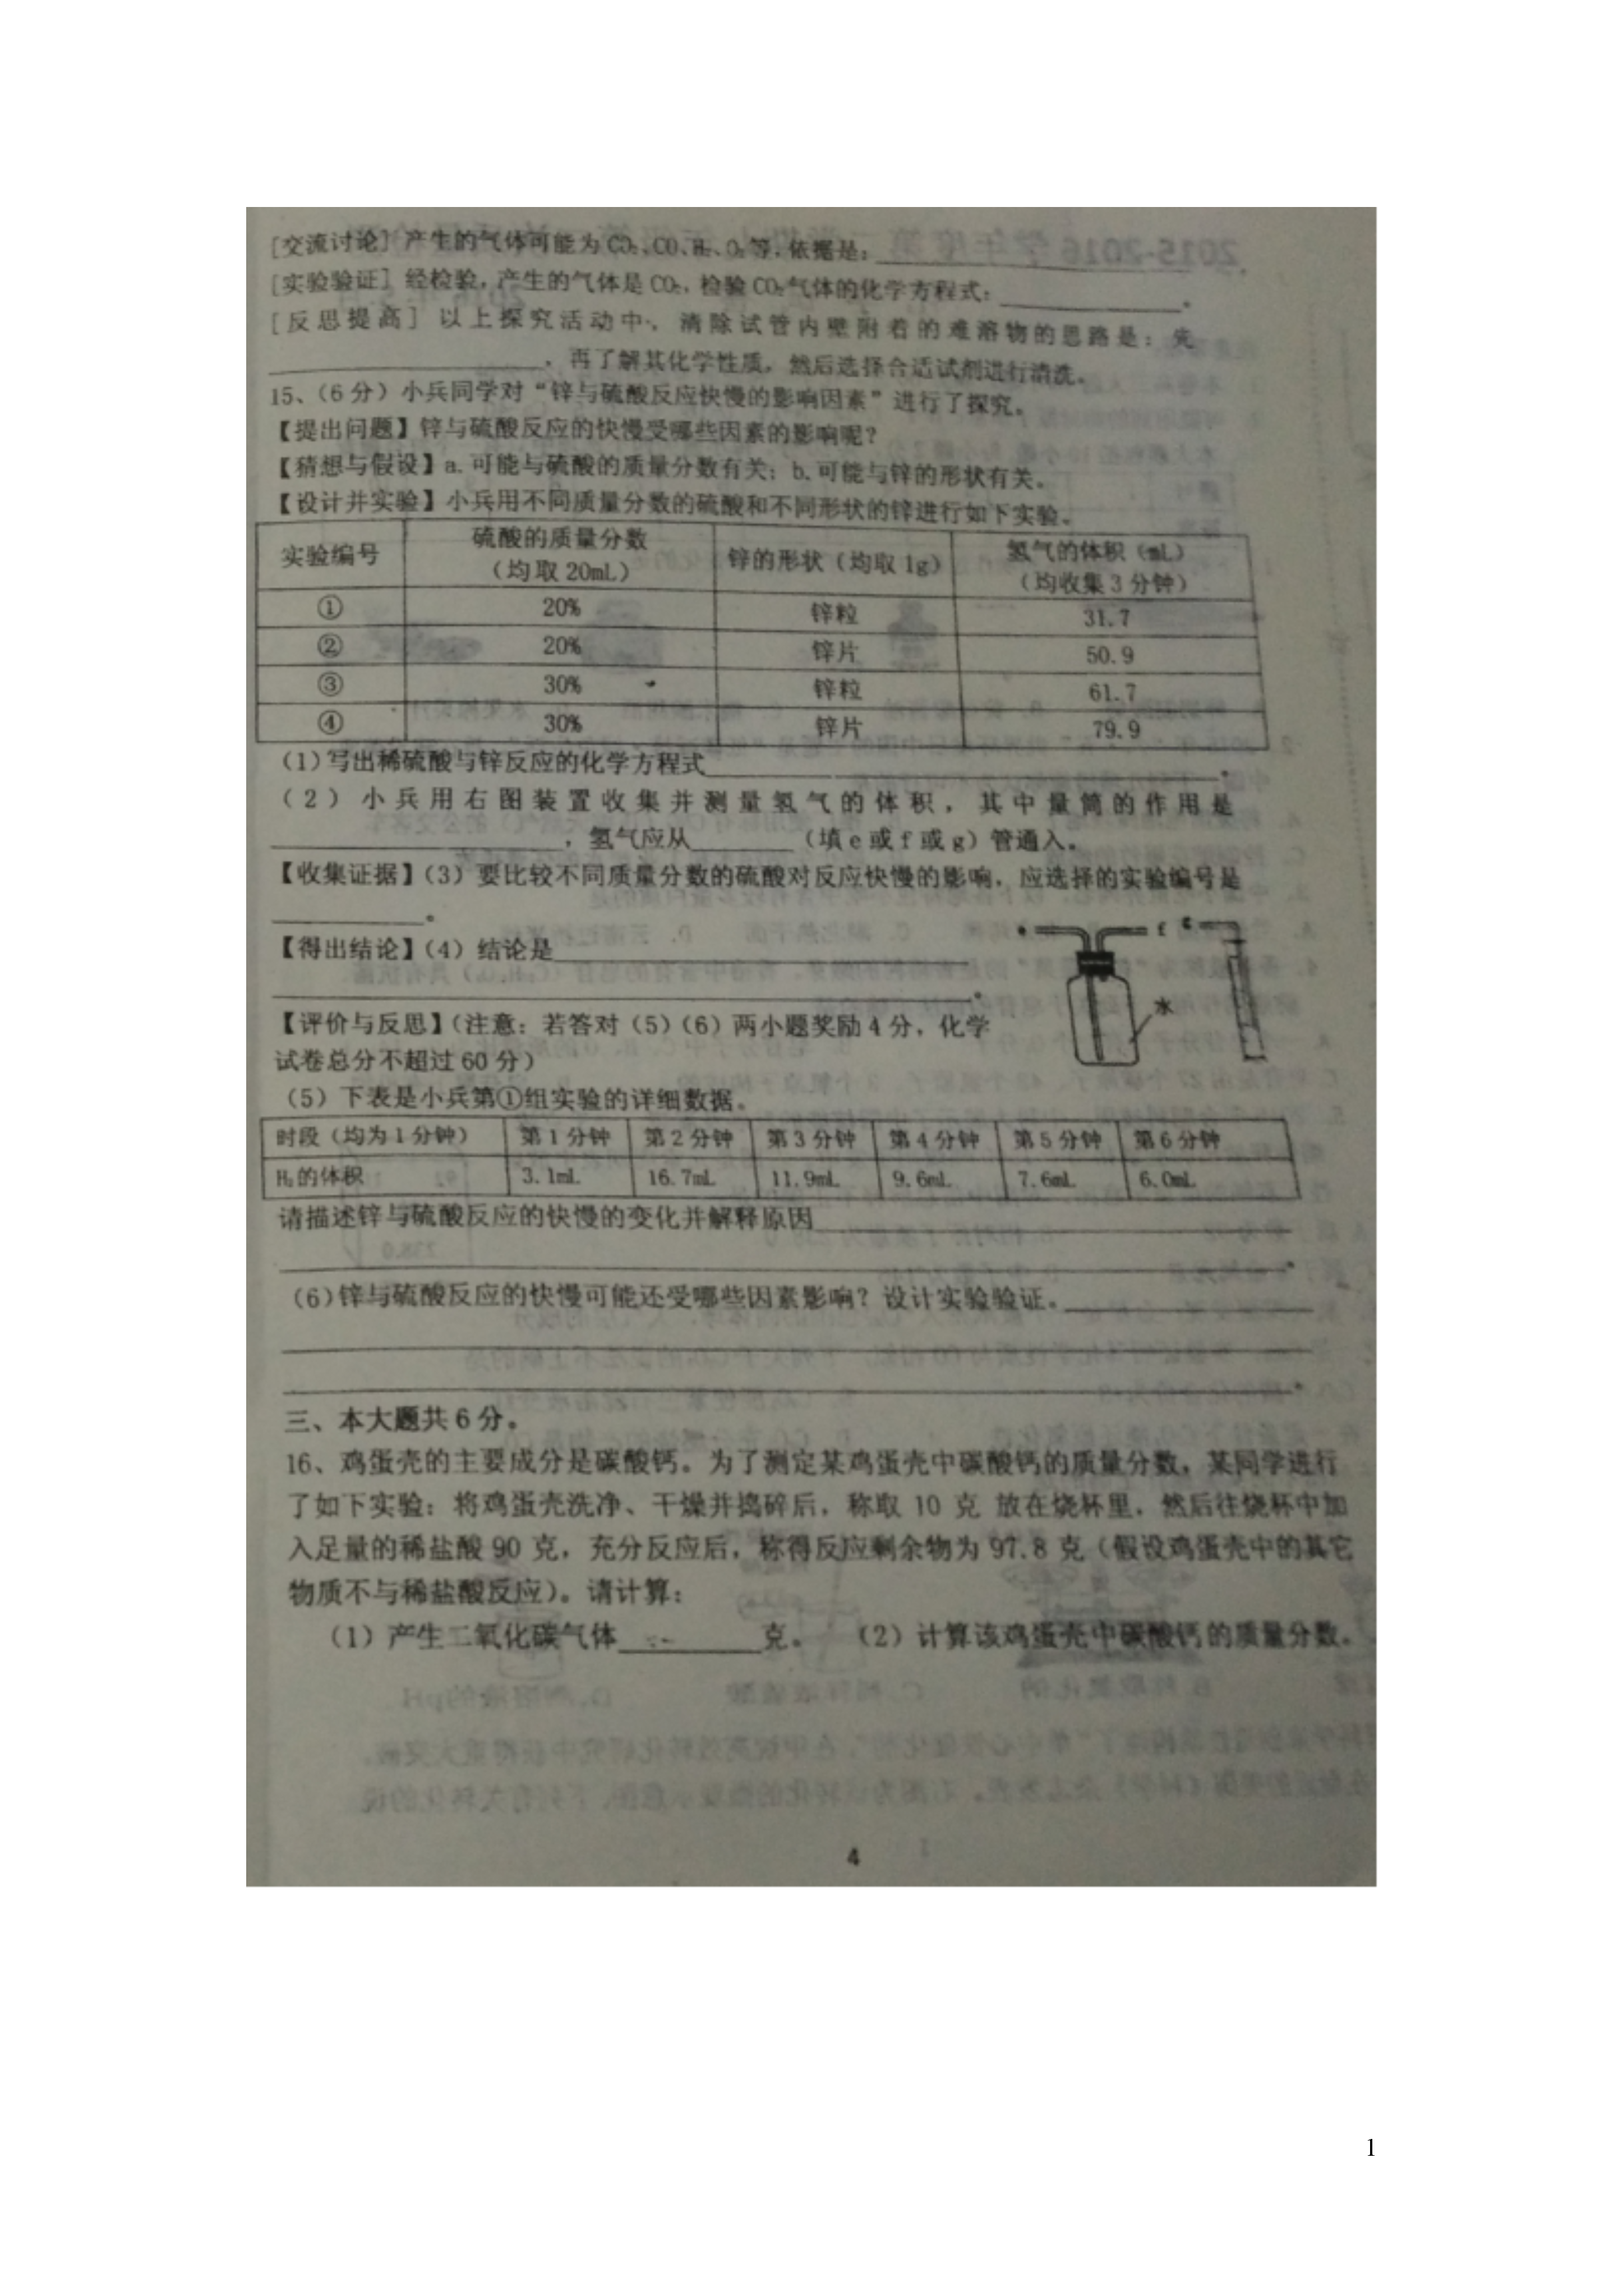 [交流讨论] 产生的气体可能为CO₂、CO、H₂、O₂等,依据是:
[实验验证] 经检验,产生的气体是CO₂,检验CO₂气体的化学方程式:。
[反思提高] 以上探究活动中,清除试管内壁附着的难溶物的思路是:先
,再了解其化学性质,然后选择合适试剂进行清洗。
15、(6分)小兵同学对“锌与硫酸反应快慢的影响因素”进行了探究。
【提出问题】锌与硫酸反应的快慢受哪些因素的影响呢?
【猜想与假设】a.可能与硫酸的质量分数有关;b.可能与锌的形状有关。
【设计并实验】小兵用不同质量分数的硫酸和不同形状的锌进行如下实验。
实验编号 硫酸的质量分数(均取20mL) 锌的形状(均取1g) 氢气的体积(mL)(均收集3分钟)
① 20% 锌粒 31.7
② 20% 锌片 50.9
③ 30% 锌粒 61.7
④ 30% 锌片 79.9
(1)写出稀硫酸与锌反应的化学方程式。
(2)小兵用右图装置收集并测量氢气的体积,其中量筒的作用是
,氢气应从(填e或f或g)管通入。
【收集证据】(3)要比较不同质量分数的硫酸对反应快慢的影响,应选择的实验编号是
。
f g
【得出结论】(4)结论是
。
水
【评价与反思】(注意:若答对(5)(6)两小题奖励4分,化学
试卷总分不超过60分)
(5)下表是小兵第①组实验的详细数据。
时段(均为1分钟) 第1分钟 第2分钟 第3分钟 第4分钟 第5分钟 第6分钟
H₂的体积 3.1mL 16.7mL 11.9mL 9.6mL 7.6mL 6.0mL
请描述锌与硫酸反应的快慢的变化并解释原因
。
(6)锌与硫酸反应的快慢可能还受哪些因素影响?设计实验验证。
。
三、本大题共6分。
16、鸡蛋壳的主要成分是碳酸钙。为了测定某鸡蛋壳中碳酸钙的质量分数,某同学进行
了如下实验:将鸡蛋壳洗净、干燥并捣碎后,称取 10 克 放在烧杯里,然后往烧杯中加
入足量的稀盐酸 90 克,充分反应后,称得反应剩余物为 97.8 克(假设鸡蛋壳中的其它
物质不与稀盐酸反应)。请计算:
(1)产生二氧化碳气体克。 (2)计算该鸡蛋壳中碳酸钙的质量分数。
4
1